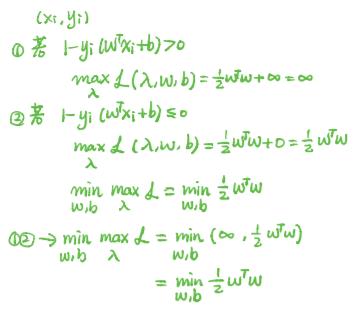 (xi, yi)
① 若 1-yi(wᵀxi+b)>0
max λ L(λ,w,b)=½wᵀw+∞=∞
② 若 1-yi(wᵀxi+b)≤0
max λ L(λ,w,b)=½wᵀw+0=½wᵀw
min w,b max λ L = min w,b ½wᵀw
①②→ min w,b max λ L = min w,b (∞, ½wᵀw)
= min w,b ½wᵀw